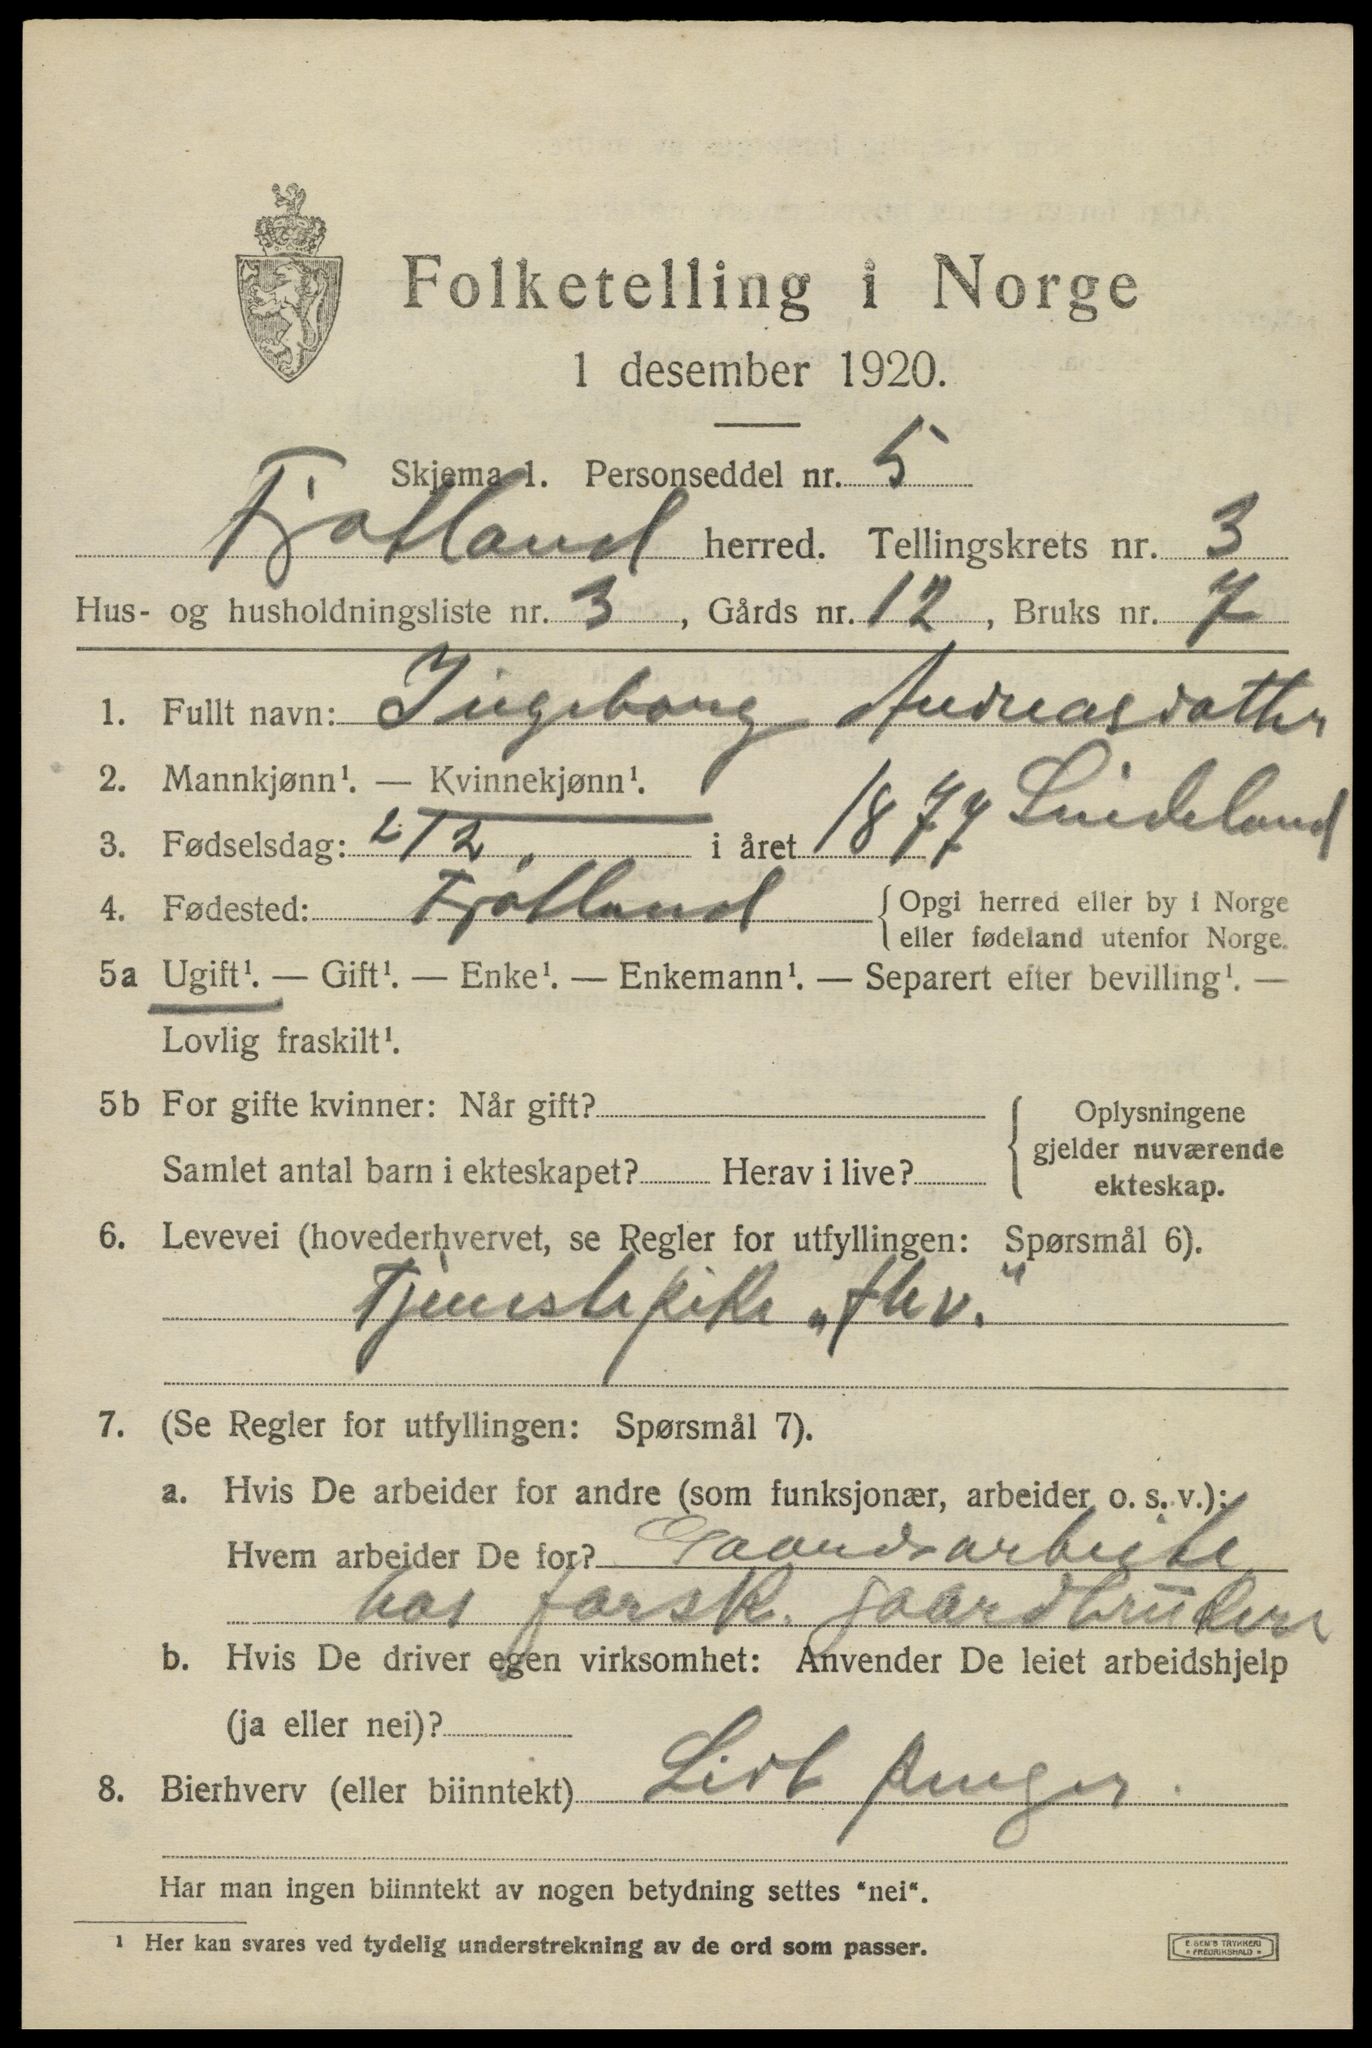 Folketelling i Norge
1 desember 1920.
Skjema 1. Personseddel nr. 5
Fjotland herred. Tellingskrets nr. 3
Hus- og husholdningsliste nr. 3, Gårds nr. 12, Bruks nr. 7
1. Fullt navn: Ingeborg Andreasdatter
Lindeland
2. Mannkjønn¹. — Kvinnekjønn¹.
3. Fødselsdag: 2/2 i året 1877
4. Fødested: Fjotland {Opgi herred eller by i Norge
eller fødeland utenfor Norge.
5a Ugift¹. — Gift¹. — Enke¹. — Enkemann¹. — Separert efter bevilling¹. —
Lovlig fraskilt¹.
5b For gifte kvinner: Når gift?
Samlet antal barn i ekteskapet? Herav i live?
{Oplysningene
gjelder nuværende
ekteskap.
6. Levevei (hovederhvervet, se Regler for utfyllingen: Spørsmål 6).
Tjenestepike „fhv.“
7. (Se Regler for utfyllingen: Spørsmål 7).
a. Hvis De arbeider for andre (som funksjonær, arbeider o. s. v.):
Hvem arbeider De for?
hos forsk. gaardbrukere
b. Hvis De driver egen virksomhet: Anvender De leiet arbeidshjelp
(ja eller nei)?
8. Bierhverv (eller biinntekt)
Har man ingen biinntekt av nogen betydning settes "nei".
¹ Her kan svares ved tydelig understrekning av de ord som passer.
E. SEM'S TRYKKERI
FREDRIKSHALD